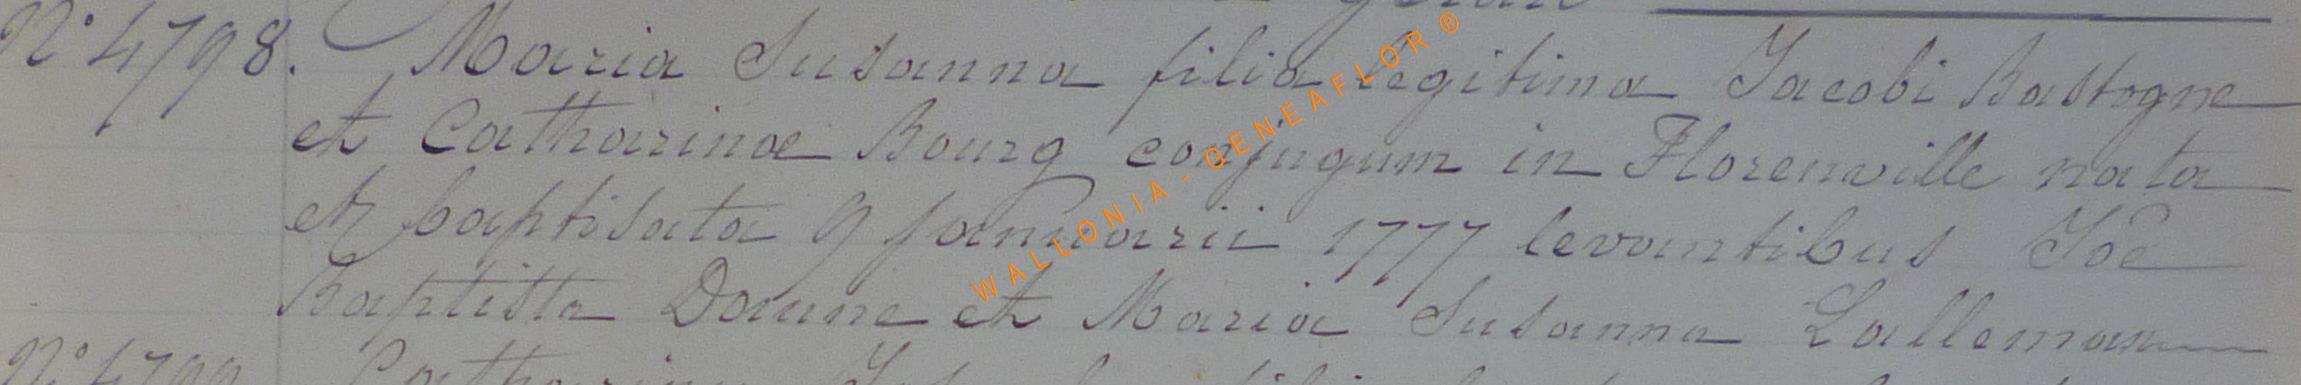 N° 4798. Maria Susanna filia legitima Jacobi Bastogne
et Catharinæ Bourg conjugum in Florenville nata
et baptisata 9 januarii 1777 levantibus Joe
Baptista Daune et Maria Susanna Lalleman
N° 4799 Catharina
WALLONIA - GENEAFLOR ®